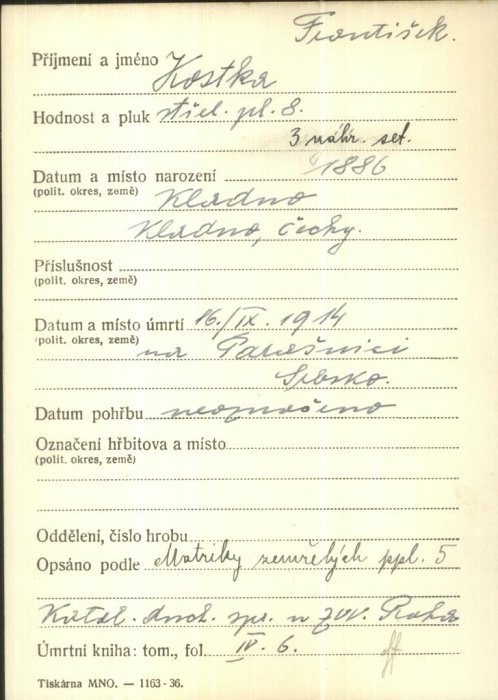 František.
Příjmení a jméno Kostka
Hodnost a pluk střel. pl. 8.
3 náhr. set.
Datum a místo narození 1886
(polit. okres, země) Kladno
Kladno, Čechy.
Příslušnost
(polit. okres, země)
Datum a místo úmrtí 16./IX. 1914
(polit. okres, země) na Parašnici
Srbsko.
Datum pohřbu neoznačeno
Označení hřbitova a místo
(polit. okres, země)
Oddělení, číslo hrobu
Opsáno podle Matriky zemřelých ppl. 5
Katol. duch. spr. u zvv. Praha
Úmrtní kniha: tom., fol. IV. 6.
Tiskárna MNO. — 1163-36.